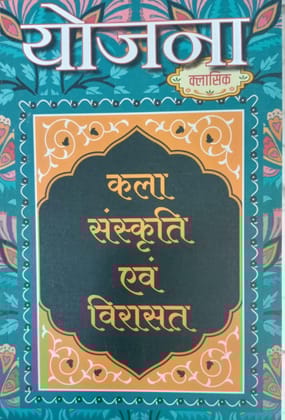 योजना
क्लासिक
कला
संस्कृति
एवं
विरासत